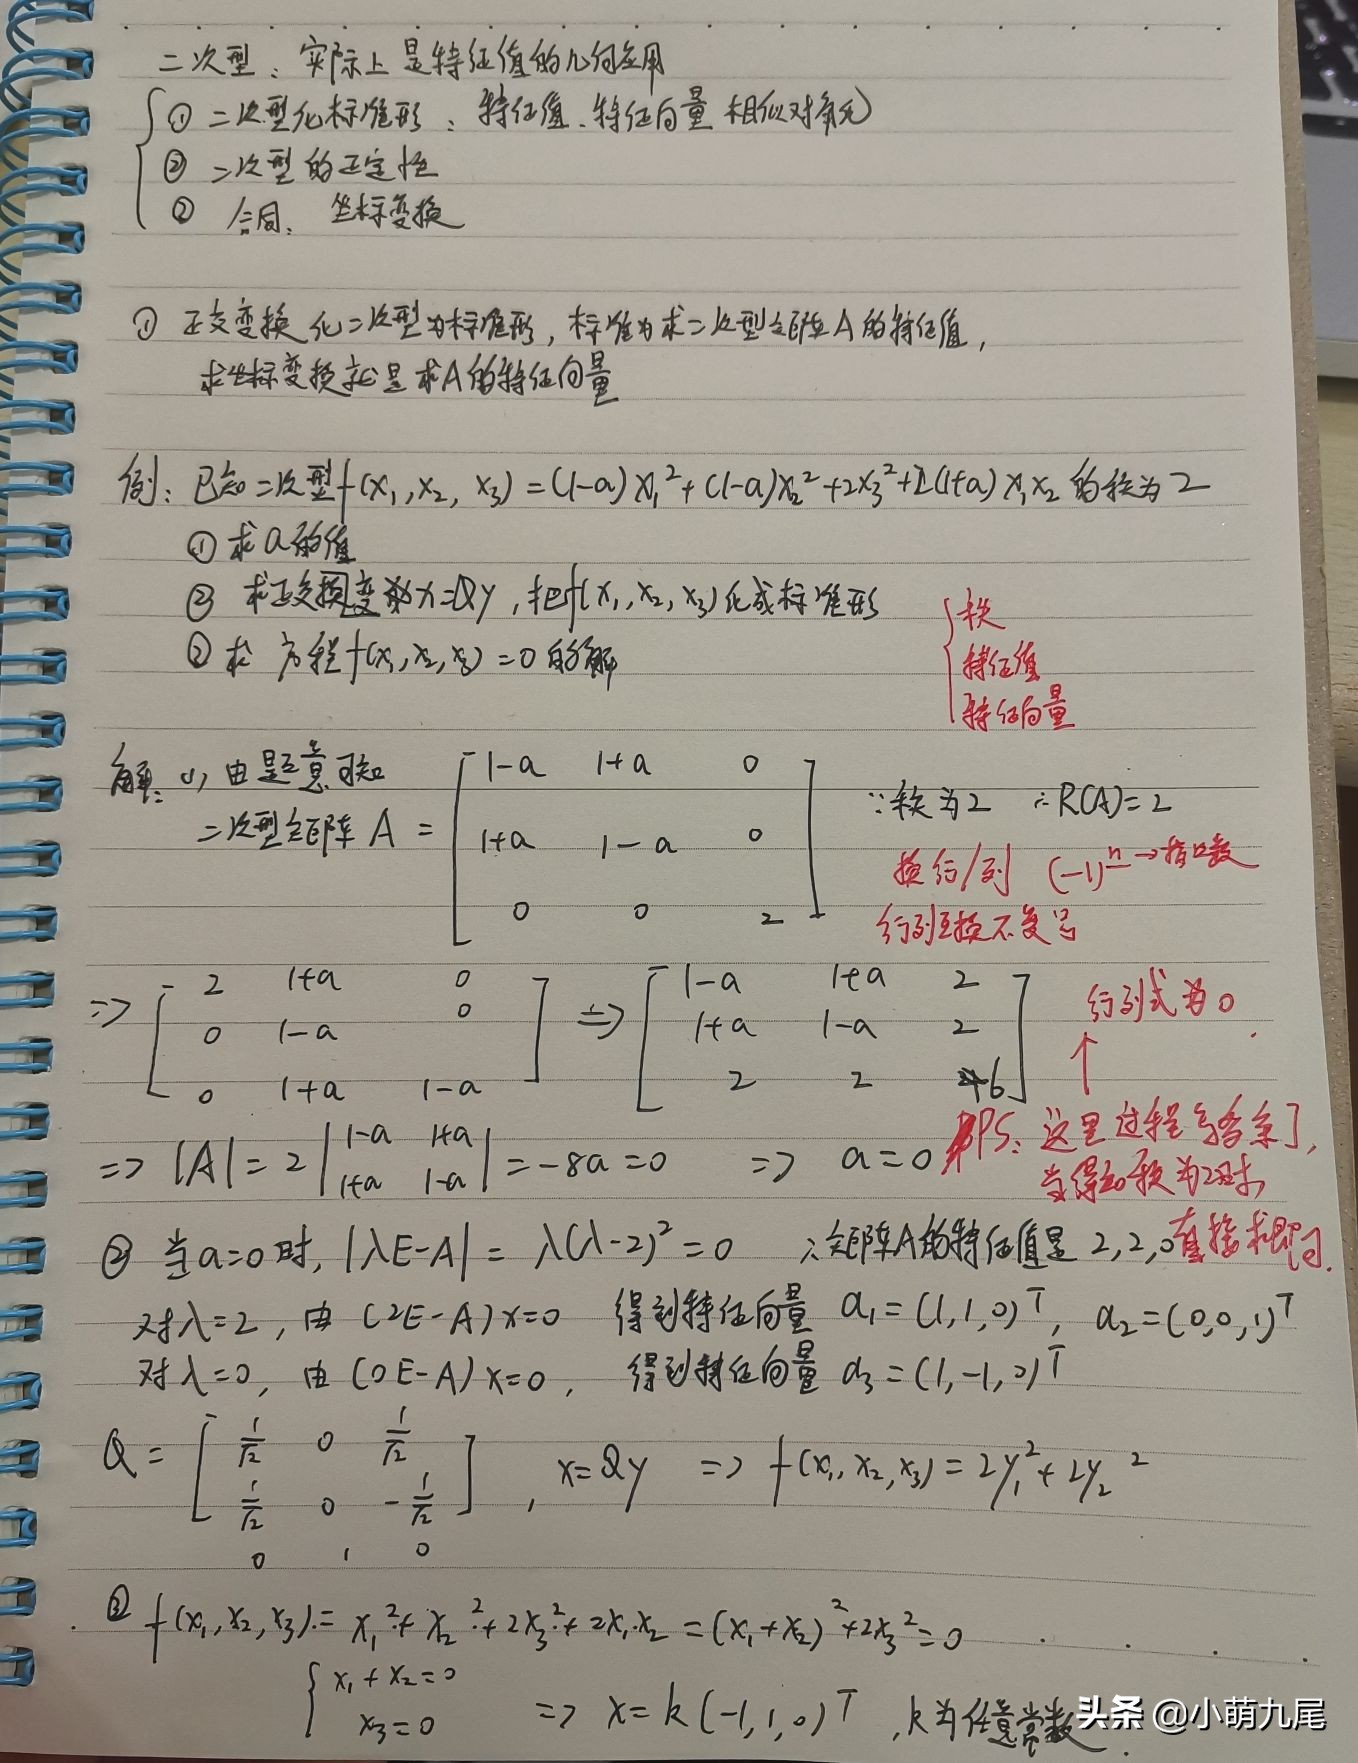 二次型：实际上是特征值的几何应用
① 二次型化标准形：特征值、特征向量 相似对角化
② 二次型的正定性
② 合同、坐标变换
① 正交变换化二次型为标准形，标准为求二次型矩阵A的特征值，
求坐标变换就是求A的特征向量
例：已知二次型f(x₁,x₂,x₃)=(1-a)x₁²+(1-a)x₂²+2x₃²+2(1+a)x₁x₂ 的秩为2
① 求a的值
② 求正交变换x=Qy，把f(x₁,x₂,x₃)化成标准形
② 求方程f(x₁,x₂,x₃)=0的解
秩
特征值
特征向量
解：(1) 由题意可知
二次型矩阵 A =
1-a 1+a 0
1+a 1-a 0
0 0 2
∵秩为2 ∴R(A)=2
换行/列 (-1)ⁿ→指口数
行列互换不变号
=> 2 1+a 0
0 1-a 0
0 1+a 1-a
=> 1-a 1+a 2
1+a 1-a 2
2 2 6
行列式为0
↑
=> |A| = 2 |1-a 1+a
1+a 1-a| = -8a = 0 => a=0
PS：这里过程写多余了，
当得知秩为2时，
直接求即可.
② 当a=0时，|λE-A| = λ(λ-2)² = 0 ∴矩阵A的特征值是 2,2,0
对λ=2，由(2E-A)x=0 得到特征向量 α₁=(1,1,0)ᵀ，α₂=(0,0,1)ᵀ
对λ=0，由(0E-A)x=0，得到特征向量 α₃=(1,-1,0)ᵀ
Q = 1/√2 0 1/√2
1/√2 0 -1/√2
0 1 0
，x=Qy => f(x₁,x₂,x₃)=2y₁²+2y₂²
③ f(x₁,x₂,x₃)=x₁²+x₂²+2x₃²+2x₁x₂=(x₁+x₂)²+2x₃²=0
x₁+x₂=0
x₃=0
=> x=k(-1,1,0)ᵀ，k为任意常数
头条 @小萌九尾